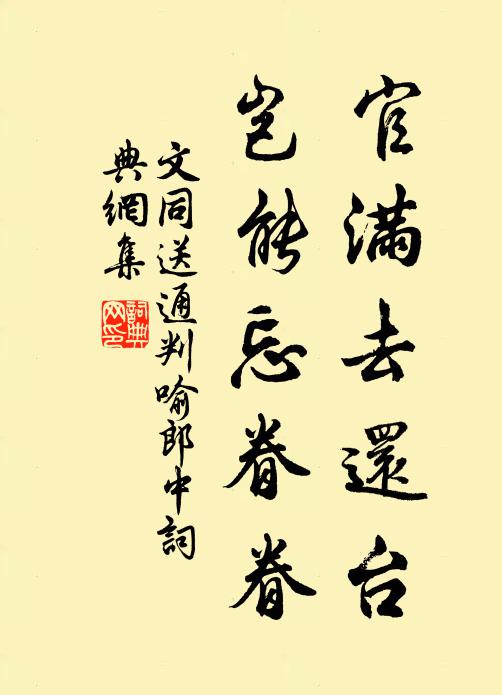 官滿去還台
豈能忘眷眷
文同送通判喻郎中詞
典網集
詞典網印